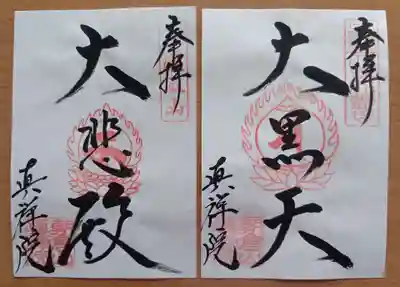 奉拝
大悲殿
真祥院
奉拝
大黒天
真祥院